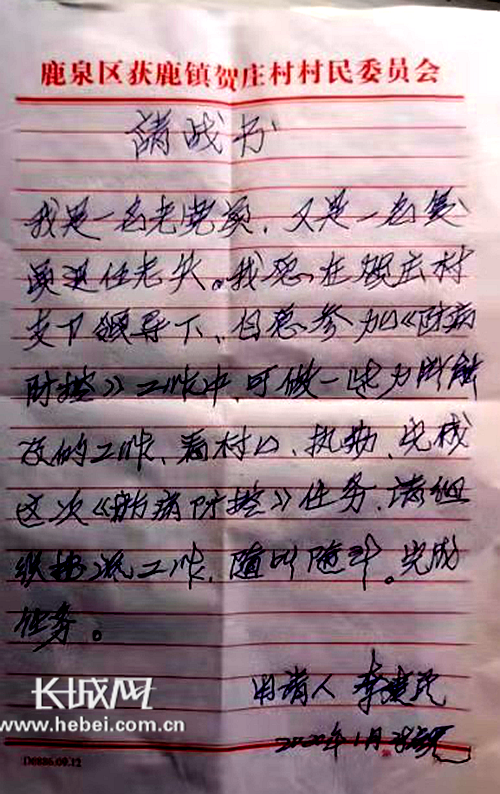 鹿泉区获鹿镇贺庄村村民委员会
请战书
我是一名老党员、又是一名复
员退伍老兵。我愿在贺庄村
支下领导下、自愿参加《防病
防控》工作中,可做一些力所能
及的工作、看村口、执勤、完成
这次《防病防控》任务,请组
织批准工作,随叫随到。完成
任务。
申请人 李
2020年1月
长城网
www.hebei.com.cn
D6886.09.12